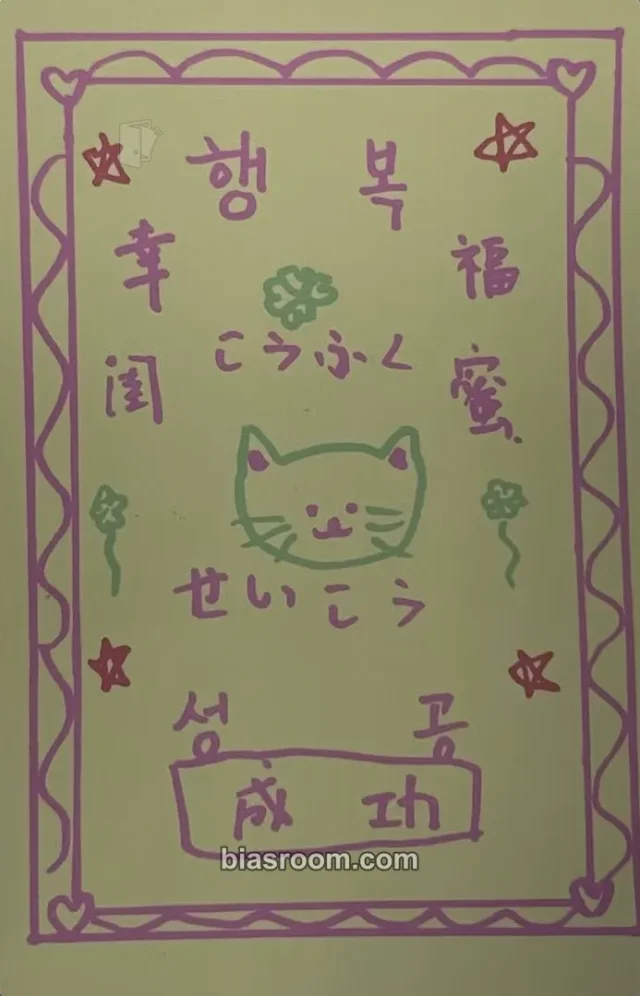 행 복
幸 福
こうふく
闺 蜜
せいこう
성 공
成 功
biasroom.com